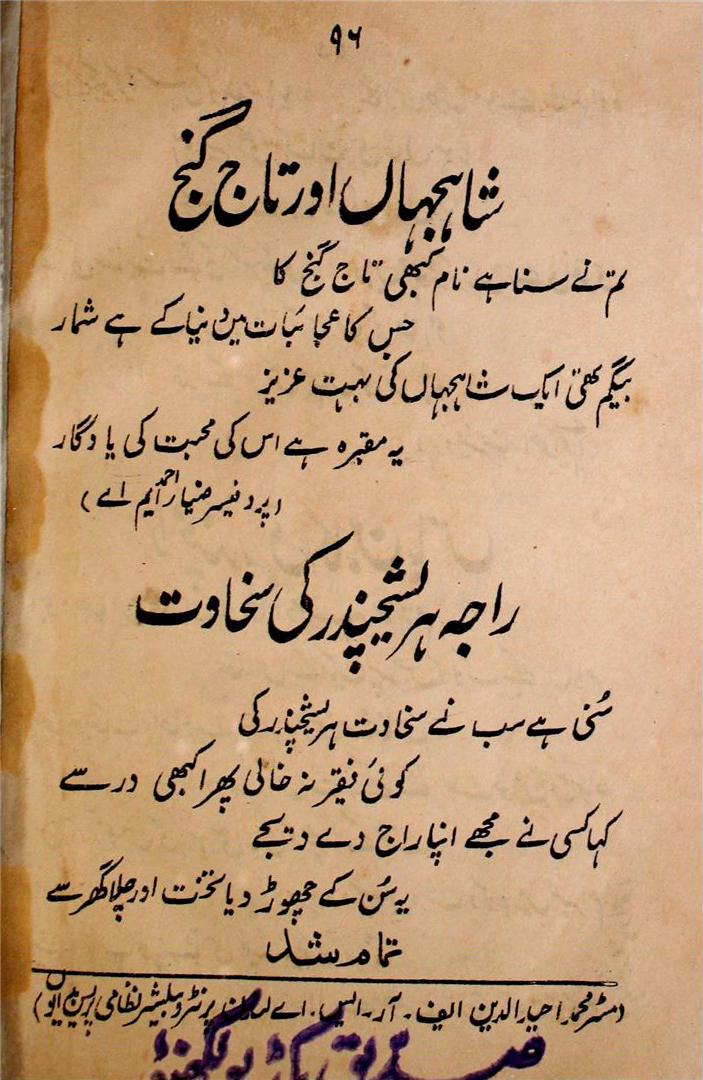 ۹۶
شاہجہاں اور تاج گنج
تم نے سنا ہے نام کبھی تاج گنج کا
جس کا عجائبات میں دنیا کے ہے شمار
بیگم تھی ایک شاہجہاں کی بہت عزیز
یہ مقبرہ ہے اس کی محبت کی یادگار
(پروفیسر ضیاء احمد ایم اے)
راجہ ہریشچندر کی سخاوت
سُنی ہے سب نے سخاوت ہریشچندر کی
کوئی فقیر نہ خالی پھرا کبھی در سے
کہا کسی نے مجھے اپنا راج دے دیجے
یہ سُن کے چھوڑ دیا تخت اور چلا گھر سے
تمام شد
(مسٹر محمد احید الدین ایف۔ آر۔ ایس۔ اے لندن پرنٹر و پبلیشر نظامی پریس بدایوں)